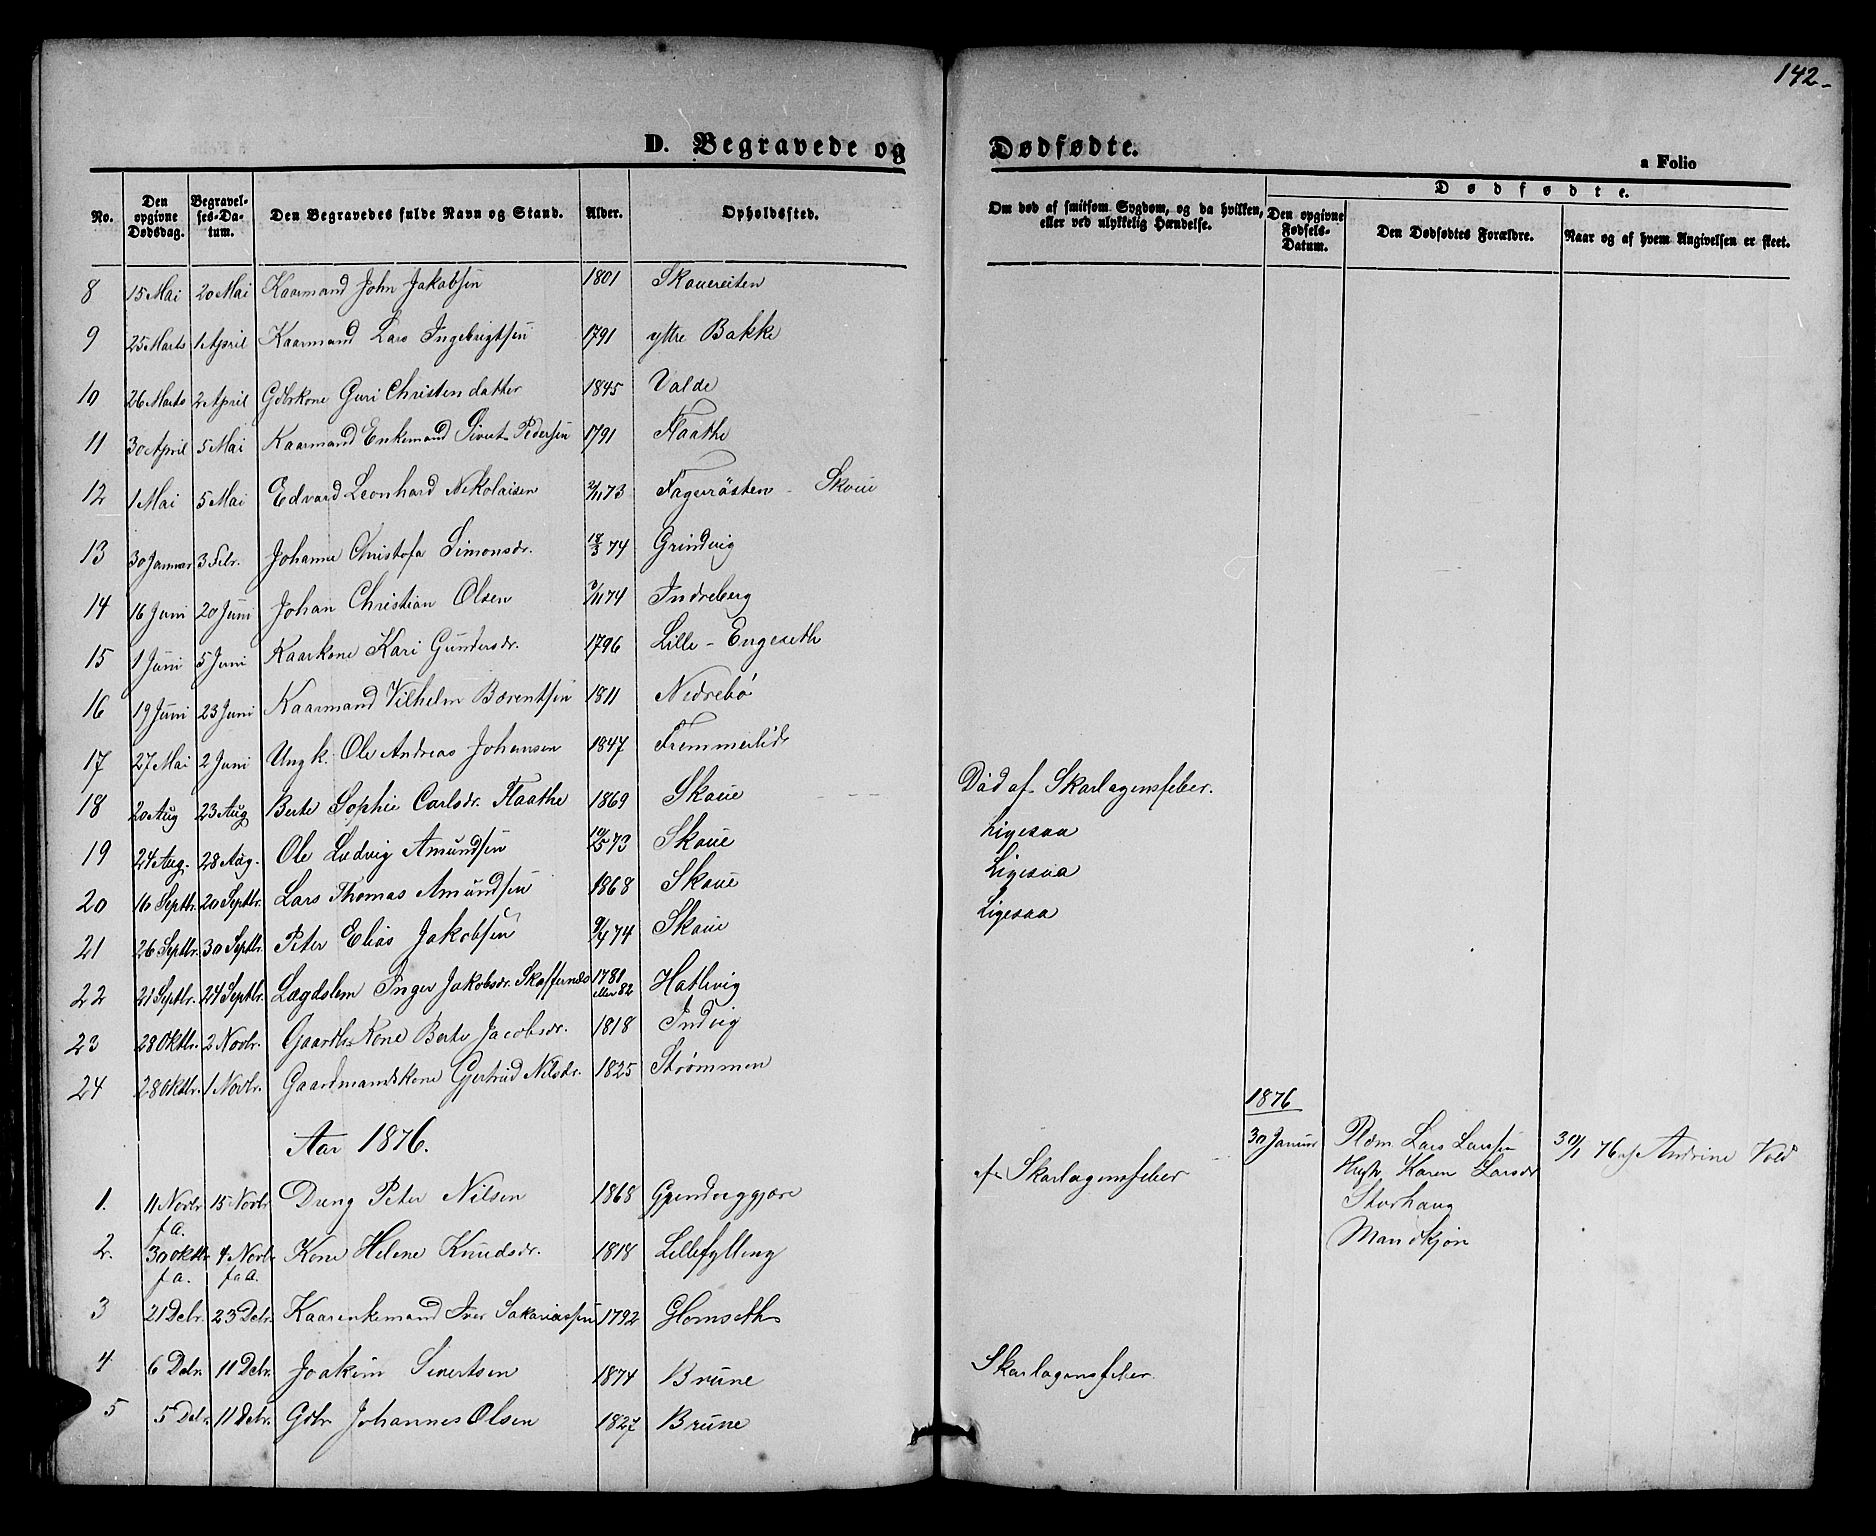 142-
D. Begravede og Dødfødte.
a Folio
No. Den opgivne Dødsdag. Begravelses-Datum. Den Begravedes fulde Navn og Stand. Alder. Opholdssted. Om død af smitsom Sygdom, og da hvilken, eller ved ulykkelig Hændelse. Dødfødte. Den opgivne Fødsels-Datum. Den Dødfødtes Forældre. Naar og af hvem Angivelsen er skeet.
8 15 Mai 20 Mai Kaarmand John Jakobsen 1801 Skouereiten
9 25 Marts 1 April Kaarmand Lars Ingebrigtsen 1791 yttre Bakke
10 26 Marts 2 April Gdbrkone Guri Christendatter 1845 Valde
11 30 April 5 Mai Kaarmand Enkemand Sivert Pedersen 1791 Flaathe
12 1 Mai 5 Mai Edvard Leonhard Nikolaisen 2/11 73 Fagerrösten - Skoue
13 30 Januar 3 Febr. Johanne Christofa Simonsdr. 18/3 74 Grindvig
14 16 Juni 20 Juni Johan Christian Olsen /11 74 Indreberg
15 1 Juni 5 Juni Kaarkone Kari Gundersdr. 1796 Lille-Engeseth
16 19 Juni 23 Juni Kaarmand Vilhelm Bærentsen 1811 Nedrebö
17 27 Mai 2 Juni Ungk. Ole Andreas Johansen 1847 Fremmerlid
18 20 Aug 23 Aug Berte Sophie Carlsdr. Flaathe 1869 Skoue Död af Skarlagensfeber.
19 24 Aug. 28 Aug. Ole Ludvig Amundsen 10/5 73 Skoue Ligesaa
20 16 Septbr. 20 Septbr. Lars Thomas Amundsen 1868 Skoue Ligesaa
21 26 Septbr. 30 Septbr. Peter Elias Jakobsen 9/4 74 Skoue Ligesaa
22 21 Septbr. 24 Septbr. Lægdslem Inger Jakobsdr. Skaffernæs 1781 eller 82 Hatlevig
23 28 Oktbr. 2 Novbr. Gaardbr. Kone Berte Jacobsdr. 1818 Indvig
24 28 Oktbr. 1 Novbr. Gaardmandskone Gjertrud Nilsdr. 1825 Strømmen
1876
Aar 1876.
30 Januar Rdm. Lars Larsen 30/1 76 af Andrine Vold
Hustr. Karen Larsdr
Storhaug
Mandkjön
1. 11 Novbr f.a. 15 Novbr Dreng Peter Nilsen 1868 Grendviggjære af Skarlagensfeber
2. 30 Oktbr. f.a. 4 Novbr. f.a. Kone Helene Knudsdr. 1818 Lillefylling
3 21 Debr. 23 Debr. Kaarenkemand Iver Sakariassen 1792 Glomseth
4 6 Debr. 11 Debr. Joakim Sivertsen 1874 Brune Skarlagensfeber.
5 5 Debr. 11 Debr. Gdbr Johannes Olsen 1827 Brune